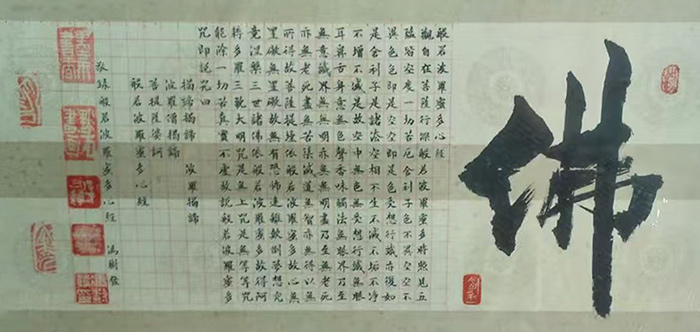 佛
般若波羅蜜多心經
觀自在菩薩行深般若波羅蜜多時照見五
蘊皆空度一切苦厄舍利子色不異空空不
異色色即是空空即是色受想行識亦復如
是舍利子是諸法空相不生不滅不垢不淨
不增不減是故空中無色無受想行識無眼
耳鼻舌身意無色聲香味觸法無眼界乃至
無意識界無無明亦無無明盡乃至無老死
亦無老死盡無苦集滅道無智亦無得以無
所得故菩薩提埵依般若波羅蜜多故心無
罣礙無罣礙故無有恐怖遠離顛倒夢想究
竟涅槃三世諸佛依般若波羅蜜多故得阿
耨多羅三藐大明咒是無上咒是無等等咒
能除一切苦真實不虛故說般若波羅蜜多
咒即說咒曰
揭諦揭諦 波羅揭諦
波羅僧揭諦
菩提薩婆訶
般若波羅蜜多心經
敬錄般若波羅蜜多心經